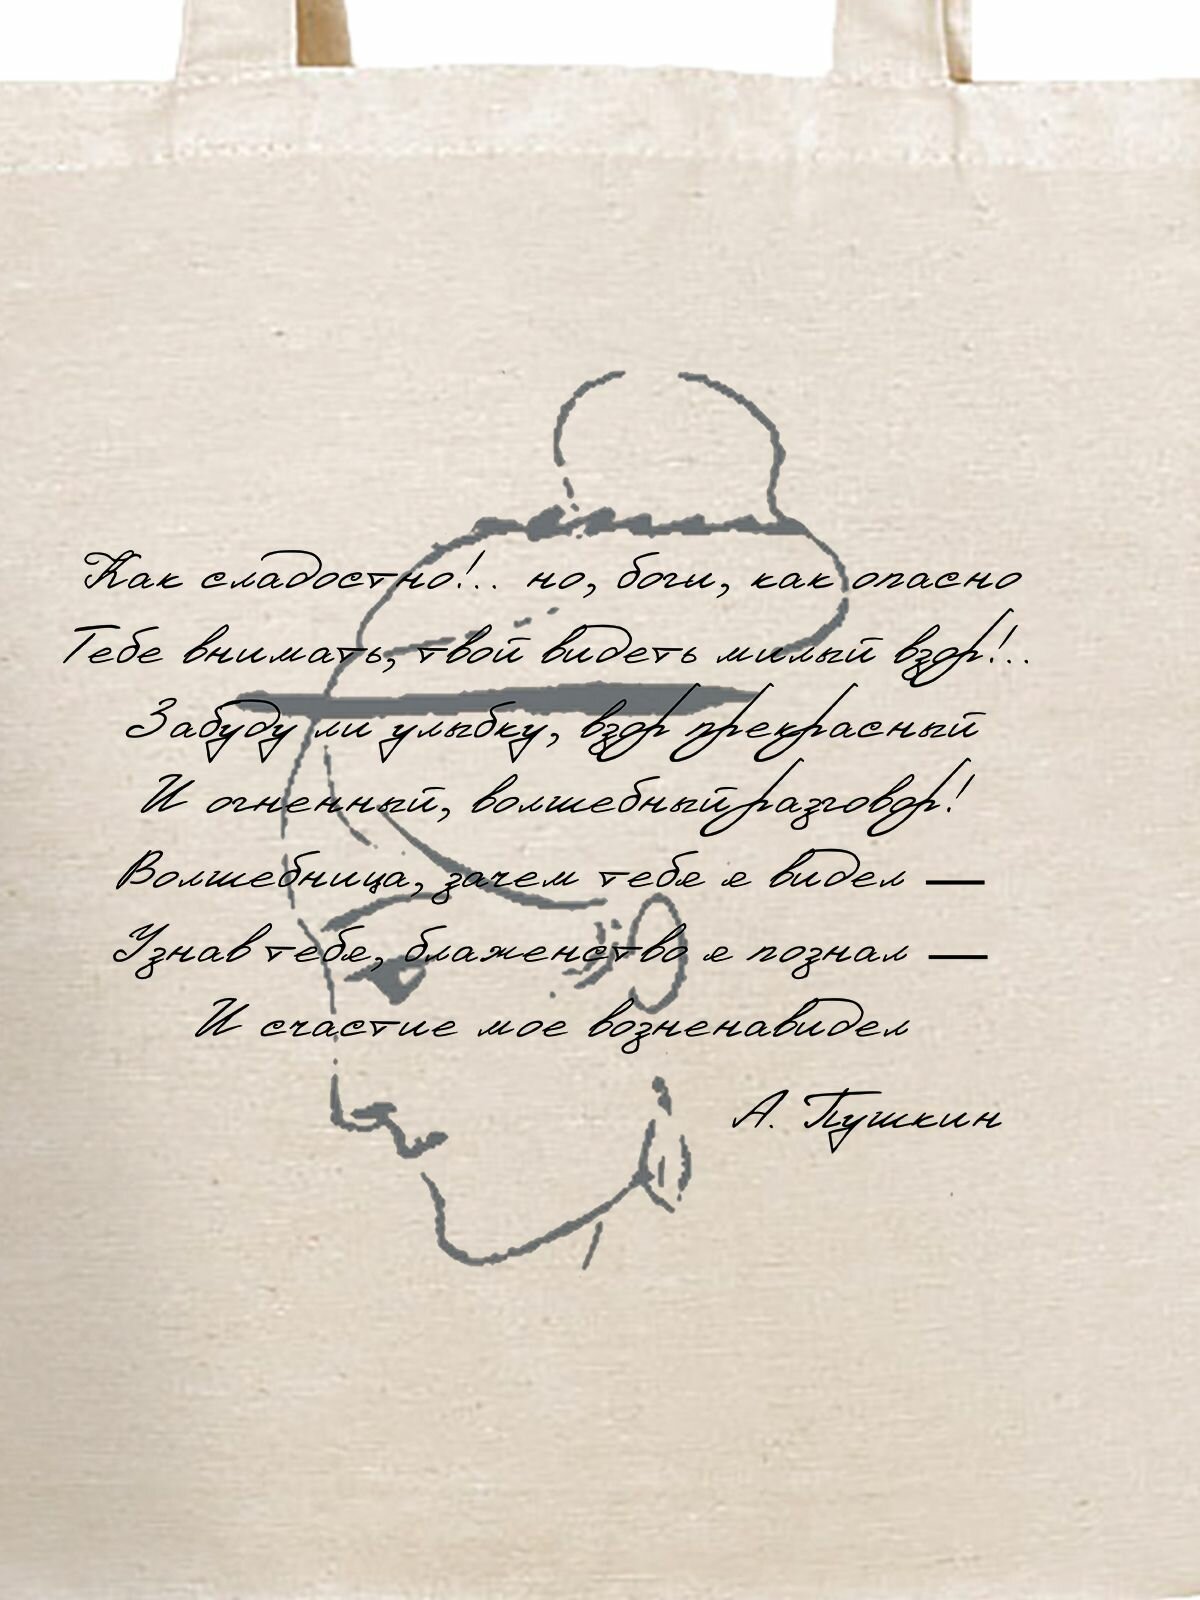 Как сладостно!.. но, боги, как опасно
Тебе внимать, твой видеть милый взор!..
Забуду ли улыбку, взор прекрасный
И огненный, волшебный разговор!
Волшебница, зачем тебя я видел —
Узнав тебя, блаженство я познал —
И счастие мое возненавидел
А. Пушкин